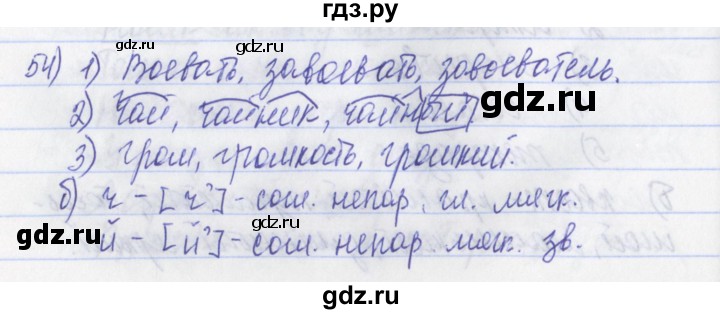 гдз.ру
gdz.ru gdz.ru
54) 1) Воевать, завоевать, завоеватель.
2) Чай, чайник, чайный
gdz.ru
gdz.ru gdz.ru
3) гром, громкость, громкий.
б) ч - [ч'] - согл. непар. гл. мягк.
gdz.ru gdz.ru
й - [й'] - согл. непар. мягк. зв.
gdz.ru
gdz.ru